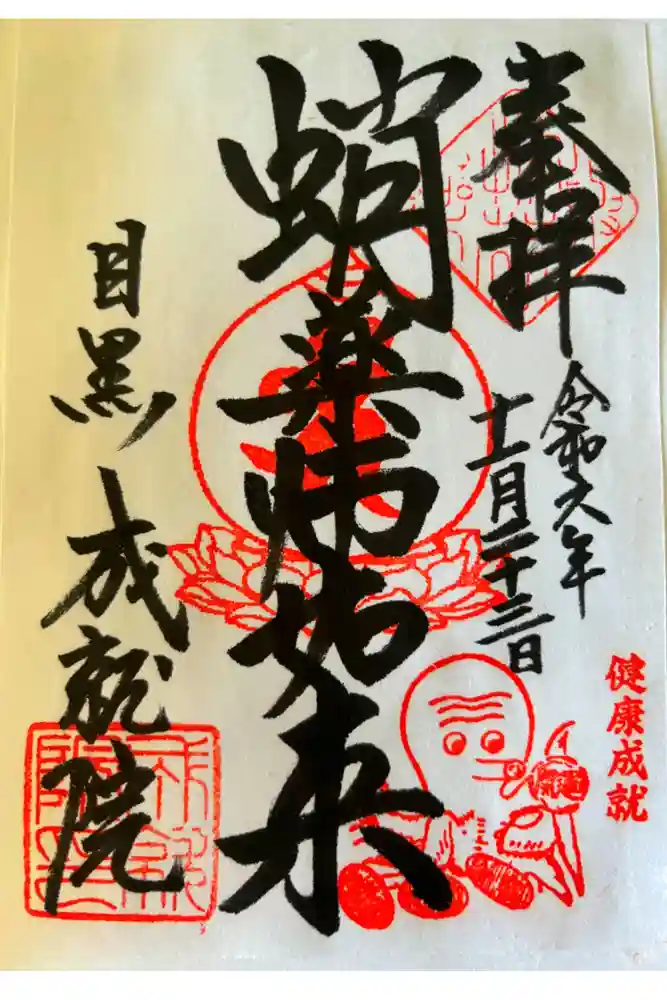 奉拝
令和六年
十一月二十三日
健康成就
蛸薬師如来
目黒 成就院